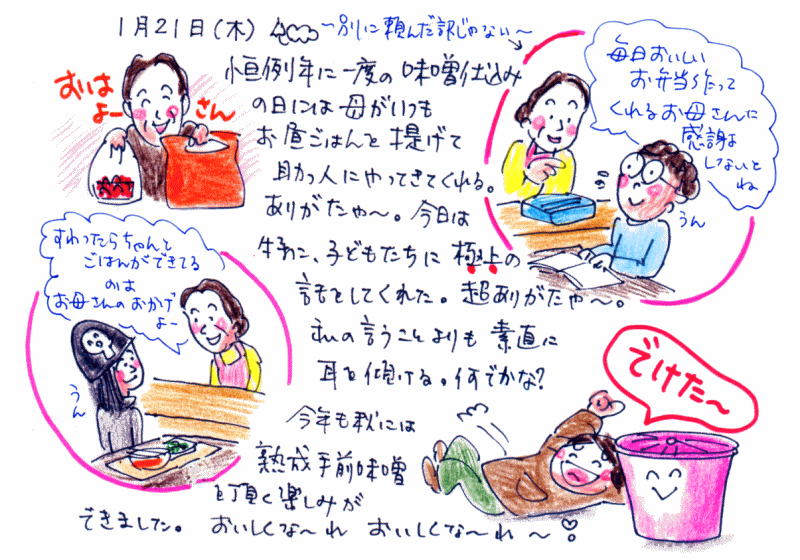 1月21日(木) 〜別に頼んだ訳じゃない〜
恒例年に一度の味噌仕込み
の日には母がいつも
お昼ごはんを提げて
助っ人にやってきてくれる。
ありがたや〜。今日は
特に、子どもたちに極上の
話をしてくれた。超ありがたや〜。
私の言うことよりも素直に
耳を傾ける。何でかな?
今年も秋には
熟成手前味噌
を頂く楽しみが
できました。 おいしくな〜れ おいしくな〜れ〜
すいは
よー さん
毎日おいしい
お弁当作って
くれるお母さんに
感謝は
しないと
ね
うん
すわったらちゃんと
ごはんができてる
のは
お母さんのおかげ
よー
うん
でけた〜